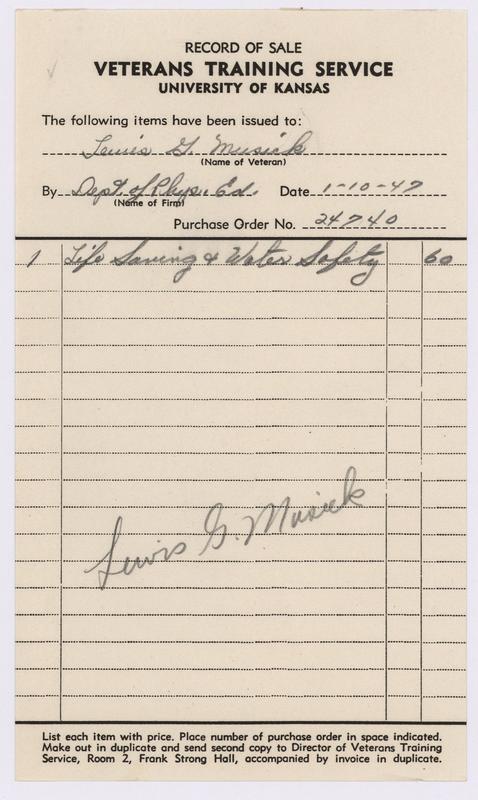 RECORD OF SALE
VETERANS TRAINING SERVICE
UNIVERSITY OF KANSAS
The following items have been issued to:
Lewis G. Musick
(Name of Veteran)
By Dept. of Phys. Ed. Date 1-10-47
(Name of Firm)
Purchase Order No. 24740
1 Life Saving & Water Safety 60
Lewis G. Musick
List each item with price. Place number of purchase order in space indicated.
Make out in duplicate and send second copy to Director of Veterans Training
Service, Room 2, Frank Strong Hall, accompanied by invoice in duplicate.